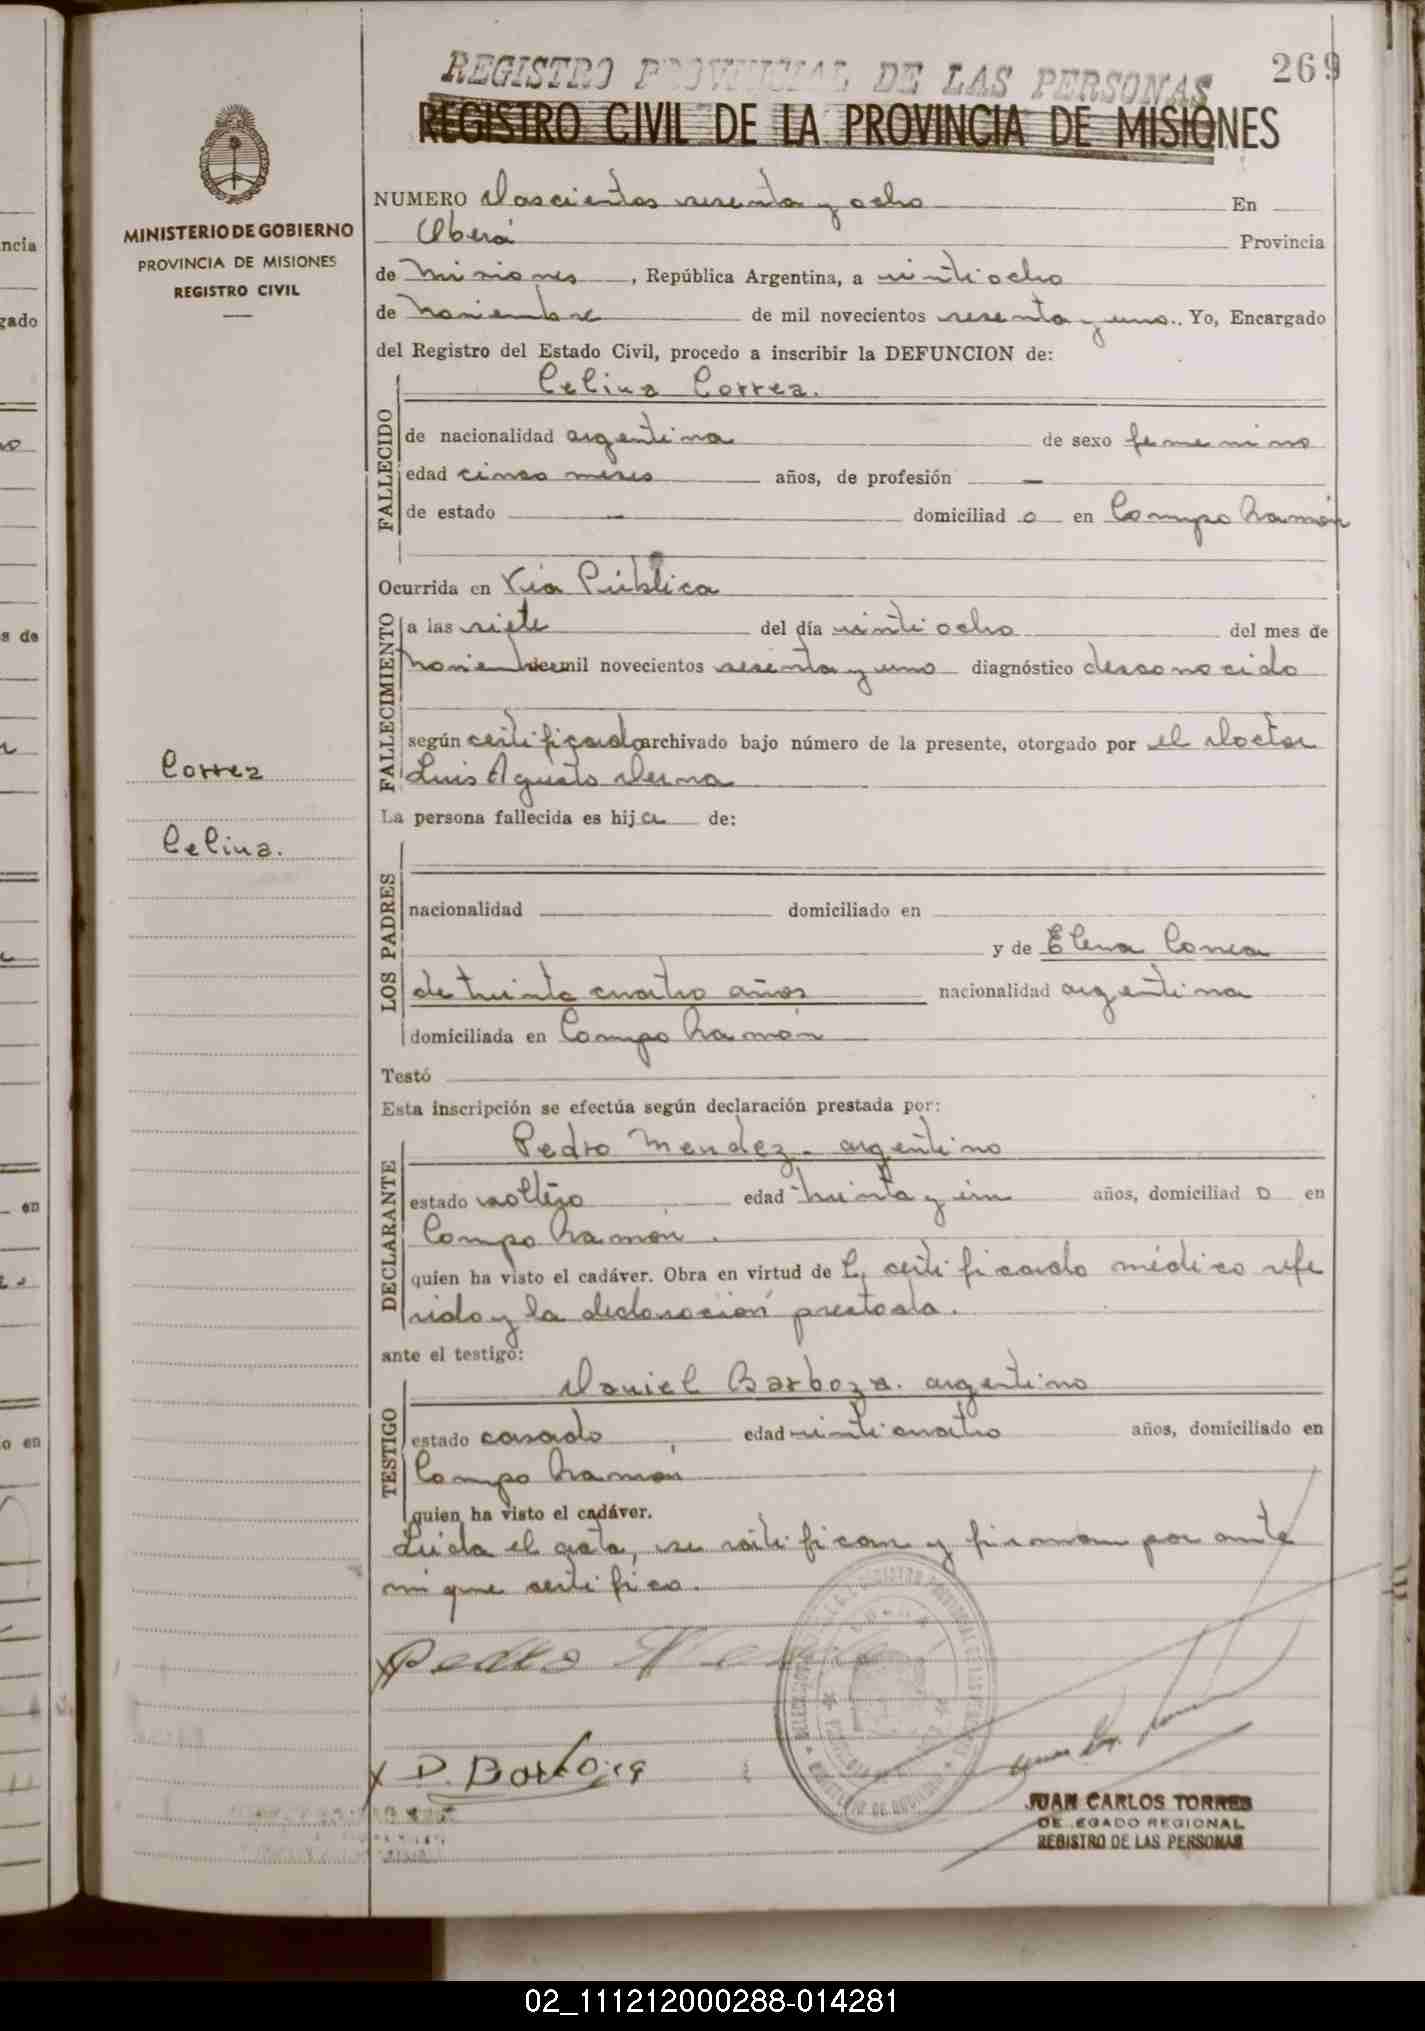 269
REGISTRO PROVINCIAL DE LAS PERSONAS
REGISTRO CIVIL DE LA PROVINCIA DE MISIONES
MINISTERIO DE GOBIERNO
PROVINCIA DE MISIONES
REGISTRO CIVIL
NUMERO doscientos sesenta y ocho En
Oberá Provincia
de Misiones, República Argentina, a vintiocho
de noviembre de mil novecientos sesenta y uno. Yo, Encargado
del Registro del Estado Civil, procedo a inscribir la DEFUNCION de:
Celina Correa.
FALLECIDO
de nacionalidad argentina de sexo femenino
edad cinco meses años, de profesión —
de estado — domiciliad o en Campo Ramón
Ocurrida en Vía Pública
FALLECIMIENTO
a las siete del día vintiocho del mes de
noviembre mil novecientos sesenta y uno diagnóstico desconocido
según certificado archivado bajo número de la presente, otorgado por el doctor
Luis Agusto
Correa
Celina.
La persona fallecida es hija de:
LOS PADRES
nacionalidad domiciliado en
y de Elena Correa
de trinta cuatro años nacionalidad argentina
domiciliada en Campo Ramón
Testó
Esta inscripción se efectúa según declaración prestada por:
DECLARANTE
Pedro Mendez. argentino
estado soltero edad trinta y un años, domiciliad o en
Campo Ramón.
quien ha visto el cadáver. Obra en virtud de el certificado médico refe
rido y la declaración prestada.
ante el testigo:
TESTIGO
Daniel Barboza. argentino
estado casado edad vinticuatro años, domiciliado en
Campo Ramón
quien ha visto el cadáver.
Leida el acta, se ratifican y firman por ante
mi que certifico.
Pedro
D. Barboza
JUAN CARLOS TORRES
DELEGADO REGIONAL
REGISTRO DE LAS PERSONAS
02_111212000288-014281